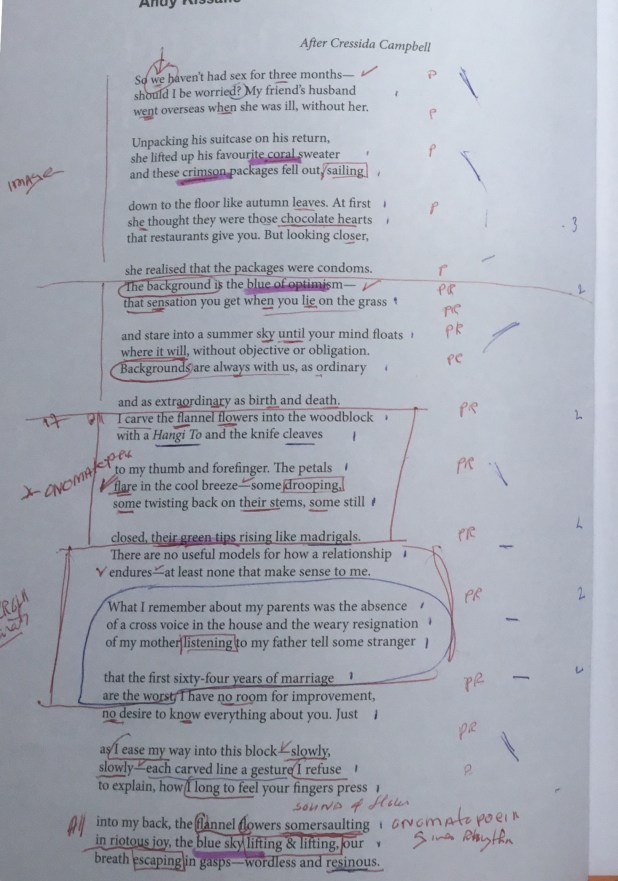 Andy Kissane
After Cressida Campbell
So we haven't had sex for three months—
should I be worried? My friend's husband
went overseas when she was ill, without her.
P
P
Unpacking his suitcase on his return,
she lifted up his favourite coral sweater
and these crimson packages fell out, sailing
P
IMAGE
down to the floor like autumn leaves. At first
she thought they were those chocolate hearts
that restaurants give you. But looking closer,
P
3
she realised that the packages were condoms.
The background is the blue of optimism—
that sensation you get when you lie on the grass
PR
2
PR
and stare into a summer sky until your mind floats
where it will, without objective or obligation.
Backgrounds are always with us, as ordinary
PR
and as extraordinary as birth and death.
I carve the flannel flowers into the woodblock
with a Hangi To and the knife cleaves
PR
2
onomatopea
to my thumb and forefinger. The petals
flare in the cool breeze—some drooping,
some twisting back on their stems, some still
PR
closed, their green tips rising like madrigals.
There are no useful models for how a relationship
endures—at least none that make sense to me.
PR
What I remember about my parents was the absence
of a cross voice in the house and the weary resignation
of my mother listening to my father tell some stranger
PR
2
that the first sixty-four years of marriage
are the worst. I have no room for improvement,
no desire to know everything about you. Just
PR
as I ease my way into this block—slowly,
slowly—each carved line a gesture I refuse
to explain, how I long to feel your fingers press
PR
sound of
into my back, the flannel flowers somersaulting
in riotous joy, the blue sky lifting & lifting, our
breath escaping in gasps—wordless and resinous.
All
onomatopoeia